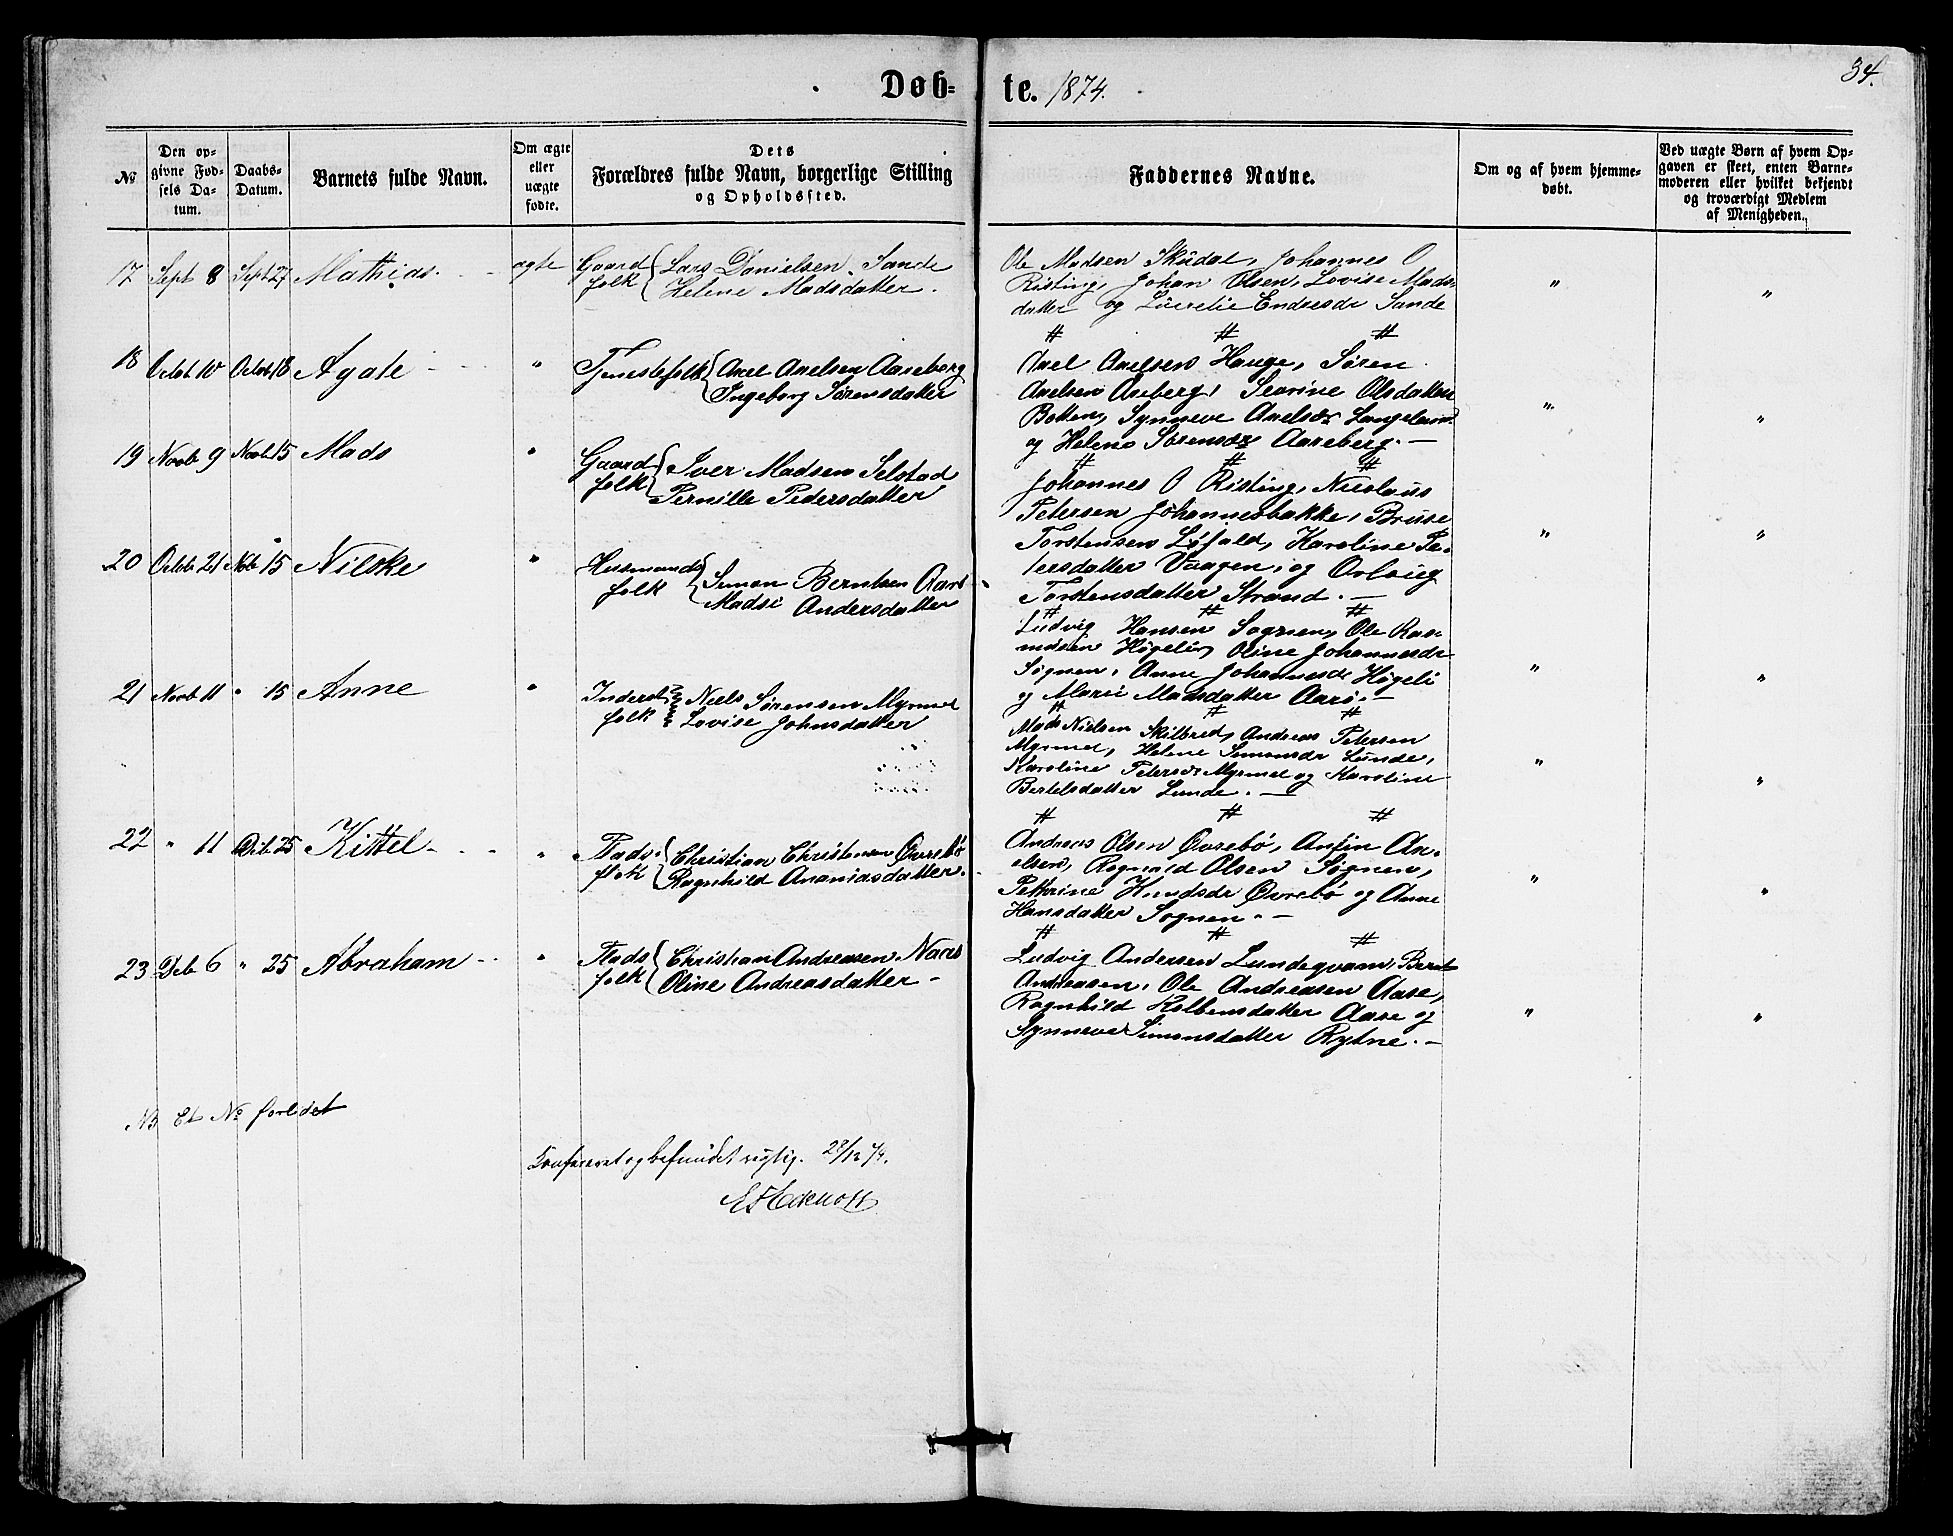 Døb-
te. 1874.
34.
№
Den op-
givne Fød-
sels Da-
tum.
Daabs-
Datum.
Barnets fulde Navn.
Om ægte
eller
uægte
fødte.
Dets
Forældres fulde Navn, borgerlige Stilling
og Opholdssted.
Faddernes Navne.
Om og af hvem hjemme-
døbt.
Ved uægte Børn af hvem Op-
gaven er skeet, enten Barne-
moderen eller hvilket bekjendt
og troværdigt Medlem
af Menigheden.
17 Sept 8 Sept 27 Mathias. ægte Gaard Lars Danielsen Sande
folk Helene Madsdatter.
Ole Madsen Skudal, Johannes O
Risting, Johan Olsen, Lovise Mads-
datter og Endresdr Sande
" "
18 Octob 10 Octob 18 Agate " Tjenestefolk Axel Axelsen Aareberg
Ingeborg Sørensdatter
Axel Axelsen Hauge, Søren
Axelsen Aaeberg, Severine Olsdatter
Botten, Synneve Axelsdr Langeland
og Helene Sørensdr Aareberg. —
" "
19 Novb 9 Novb 15 Mads " Gaard Iver Madsen Selstad
folk Pernille Pedersdatter
Johannes O Risting, Nicolaus
Petersen Johannesbakke, Bruse
Torstensen Løfald, Karoline Pe-
tersdatter Vaagen, og Orlaug
Torstensdatter Strand. —
" "
20 Octob 21 Nob 15 Nilske " Husmands Simon Berntsen Aarö
folk Madsi Andersdatter
Ludvig Hansen Sognen, Ole Ras-
mussen Høgeli, Oline Johannesdr
Sognen, Anne Johannesdr Høgeli
og Marie Madsdatter Aarö. —
" "
21 Novb 11 " 15 Anne " Inderst Niels Sørensen Myrmel
folk Lovise Johnsdatter
Mads Nielsen Skilbred, Andreas Petersen
Myrmel, Helene Simonsdr Lunde,
Karoline Petersdr Myrmel og Karoline
Bertelsdatter Lunde. —
" "
22 " 11 Deb 25 Kittel " Plads- Christian Christensen Øvrebö
folk Ragnhild Ananiasdatter.
Andreas Olsen Øvrebö, Anfin An-
Ragnald Olsen Sognen,
Pethrine Knudsdr Øvrebö og Anne
Hansdatter Sognen. —
" "
23 Deb 6 " 25 Abraham " Plads Christian Andreasen Naas
folk Oline Andreasdatter
Ludvig Andersen Lundeqvam, Bernt
Andreasen, Ole Andreasen Aase,
Ragnhild Kolbensdatter Aase og
Synneve Simonsdatter Rytne. —
" "
NB Et No
Confereret og befundet rigtig. 28/12 74.